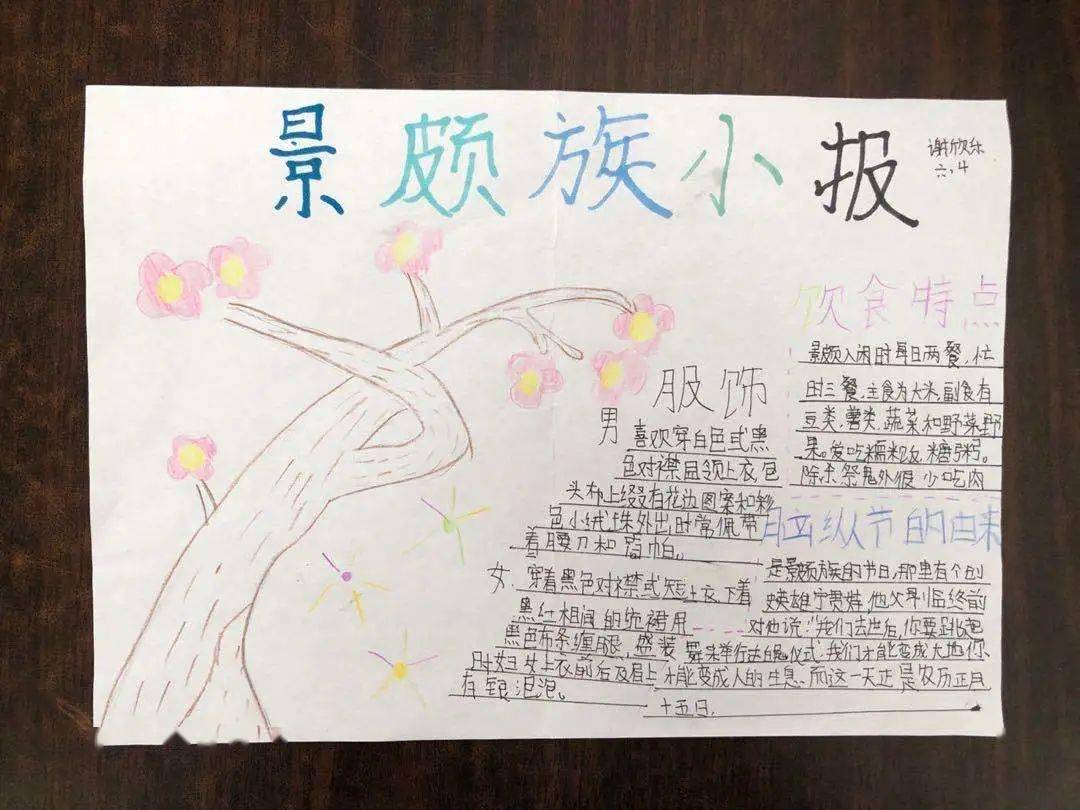 景颇族小报
谢欣乐
六,4
服饰
男 喜欢穿白色或黑
色对襟圆领上衣,包
头布上缀有花边图案和彩
色小绒珠外出时常佩带
着腰刀和筒帕。
女、穿着黑色对襟式短上衣、下着
黑红相间的统裙用
黑色布条缠腿,盛装
时妇女上衣前后及肩上
有银泡泡。
饮食特点
景颇人闲时每日两餐,忙
时三餐,主食为大米,副食有
豆类,薯类,蔬菜和野菜野
果。爱吃糯米 糖粥。
除杀祭鬼外很少吃肉
目脑纵节的由来
是景颇族的节日,那里有个创
英雄宁贯 ,他父母临终前
对他说:"我们去世后,你要跳起
舞来举行 仪式,我们才能变成大地你
才能变成人的生息.而这一天正是农历正月
十五日.